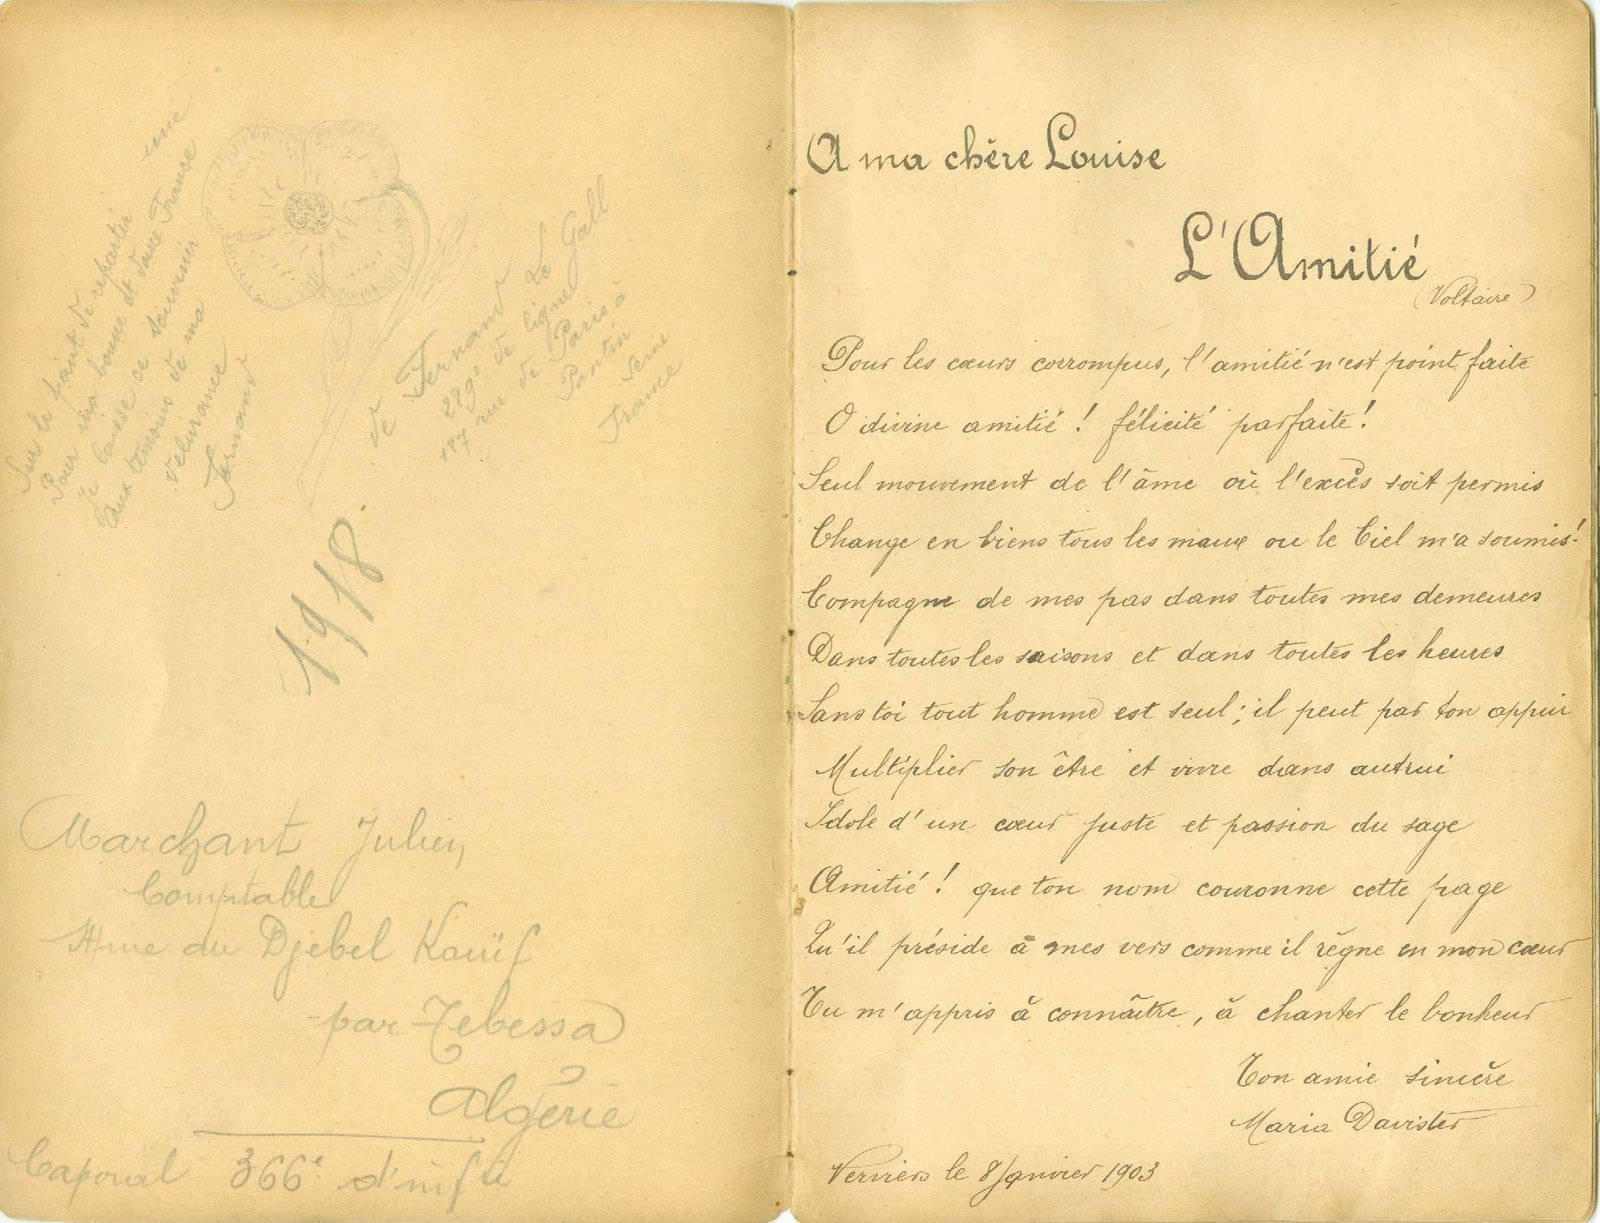 Sur le point de repartir
Pour ma bonne et douce France
Je laisse ce souvenir
aux temoins de ma
Fernand
de Fernand Le Gall
289e de ligne
187 rue de Paris à
Pantin
Seine
France
1918
Marchant Julien,
Comptable
Mine du Djebel Kouïf
par Tebessa
Algérie
Caporal 366e d'inf ie
A ma chère Louise
L'Amitié
(Voltaire)
Pour les cœurs corrompus, l'amitié n'est point faite
O divine amitié ! félicité parfaite !
Seul mouvement de l'âme où l'excès soit permis
Change en biens tous les maux ou le Ciel m'a soumis!
Compagne de mes pas dans toutes mes demeures
Dans toutes les saisons et dans toutes les heures
Sans toi tout homme est seul ; il peut par ton appui
Multiplier son être et vivre dans autrui
Idole d'un cœur juste et passion du sage
Amitié ! que ton nom couronne cette page
Qu'il préside à mes vers comme il règne en mon cœur
Tu m'appris à connaître, à chanter le bonheur
Ton amie sincère
Maria Davister
Verviers le 8 Janvier 1903